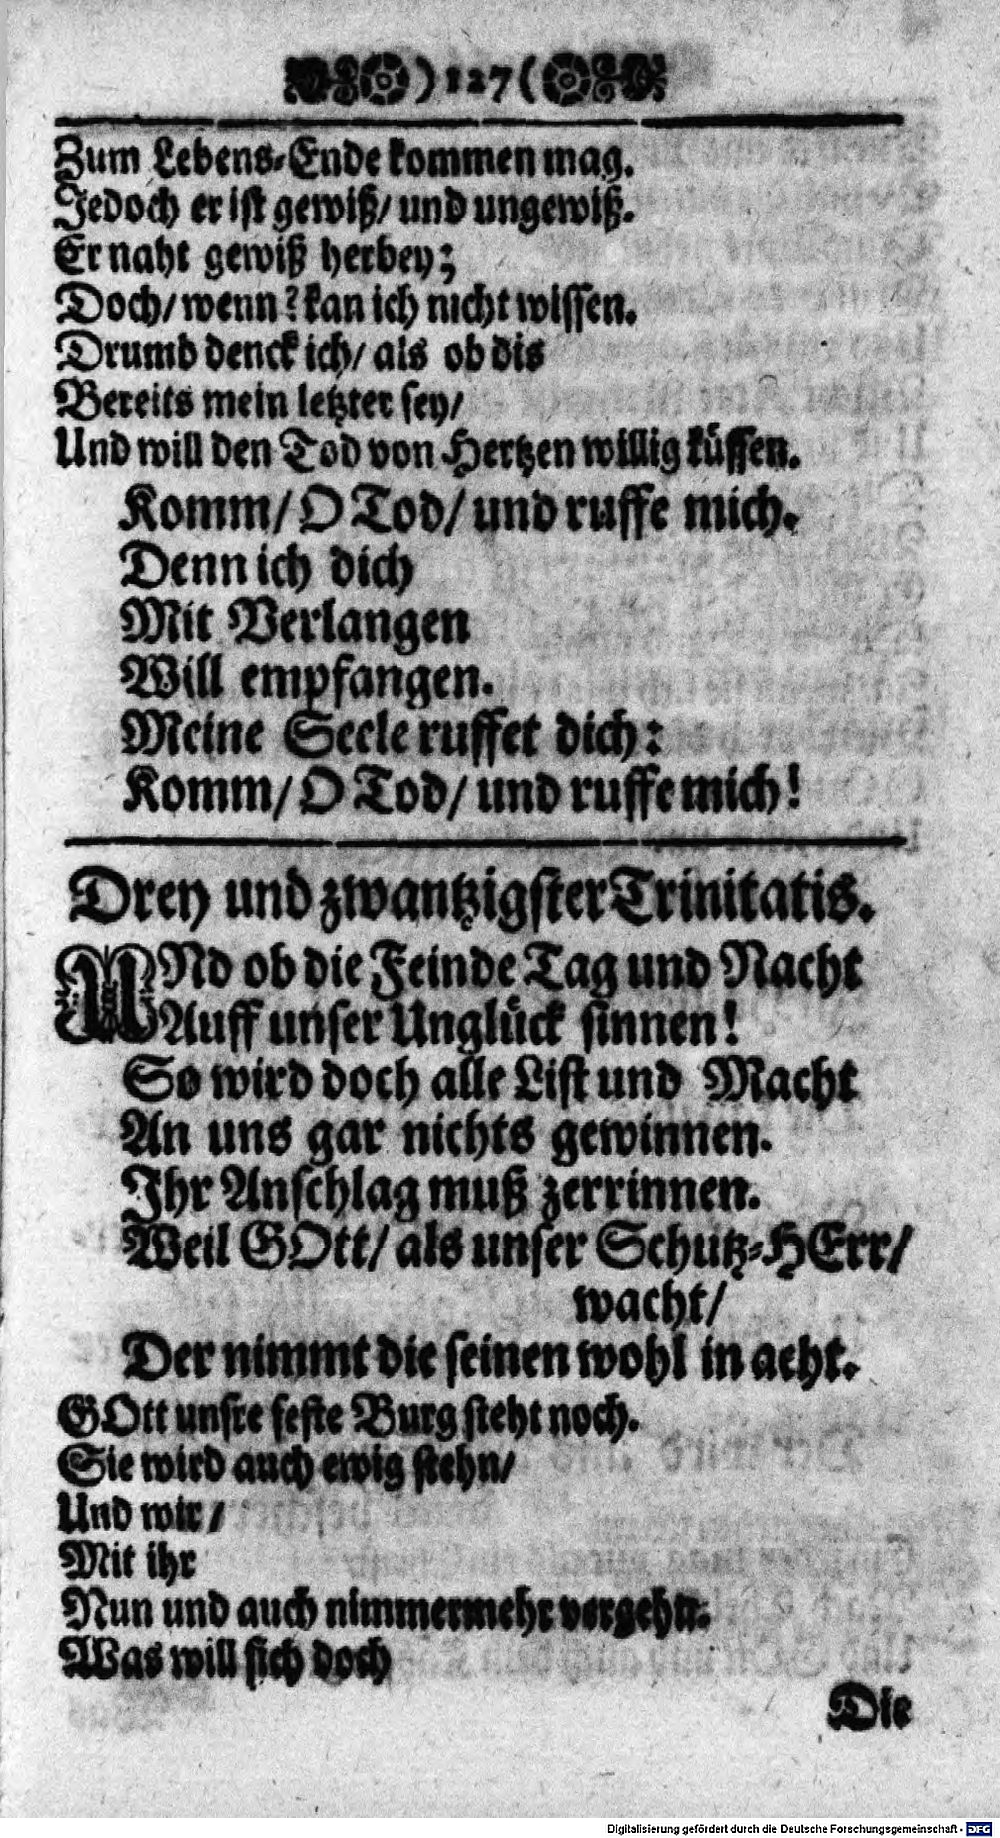 ) 127 (
Zum Lebens-Ende kommen mag.
Jedoch er ist gewiß/ und ungewiß.
Er naht gewiß herbey;
Doch/ wenn? kan ich nicht wissen.
Drumb denck ich/ als ob dis
Bereits mein letzter sey/
Und will den Tod von Hertzen willig küssen.
Komm/ O Tod/ und ruffe mich.
Denn ich dich
Mit Verlangen
Will empfangen.
Meine Seele ruffet dich:
Komm/ O Tod/ und ruffe mich!
Drey und zwantzigster Trinitatis.
UNd ob die Feinde Tag und Nacht
Auff unser Unglück sinnen!
So wird doch alle List und Macht
An uns gar nichts gewinnen.
Ihr Anschlag muß zerrinnen.
Weil GOtt/ als unser Schutz-HErr/
wacht/
Der nimmt die seinen wohl in acht.
GOtt unsre feste Burg steht noch.
Sie wird auch ewig stehn/
Und wir/
Mit ihr
Nun und auch nimmermehr vergehn.
Was will sich doch
Die
Digitalisierung gefördert durch die Deutsche Forschungsgemeinschaft - DFG